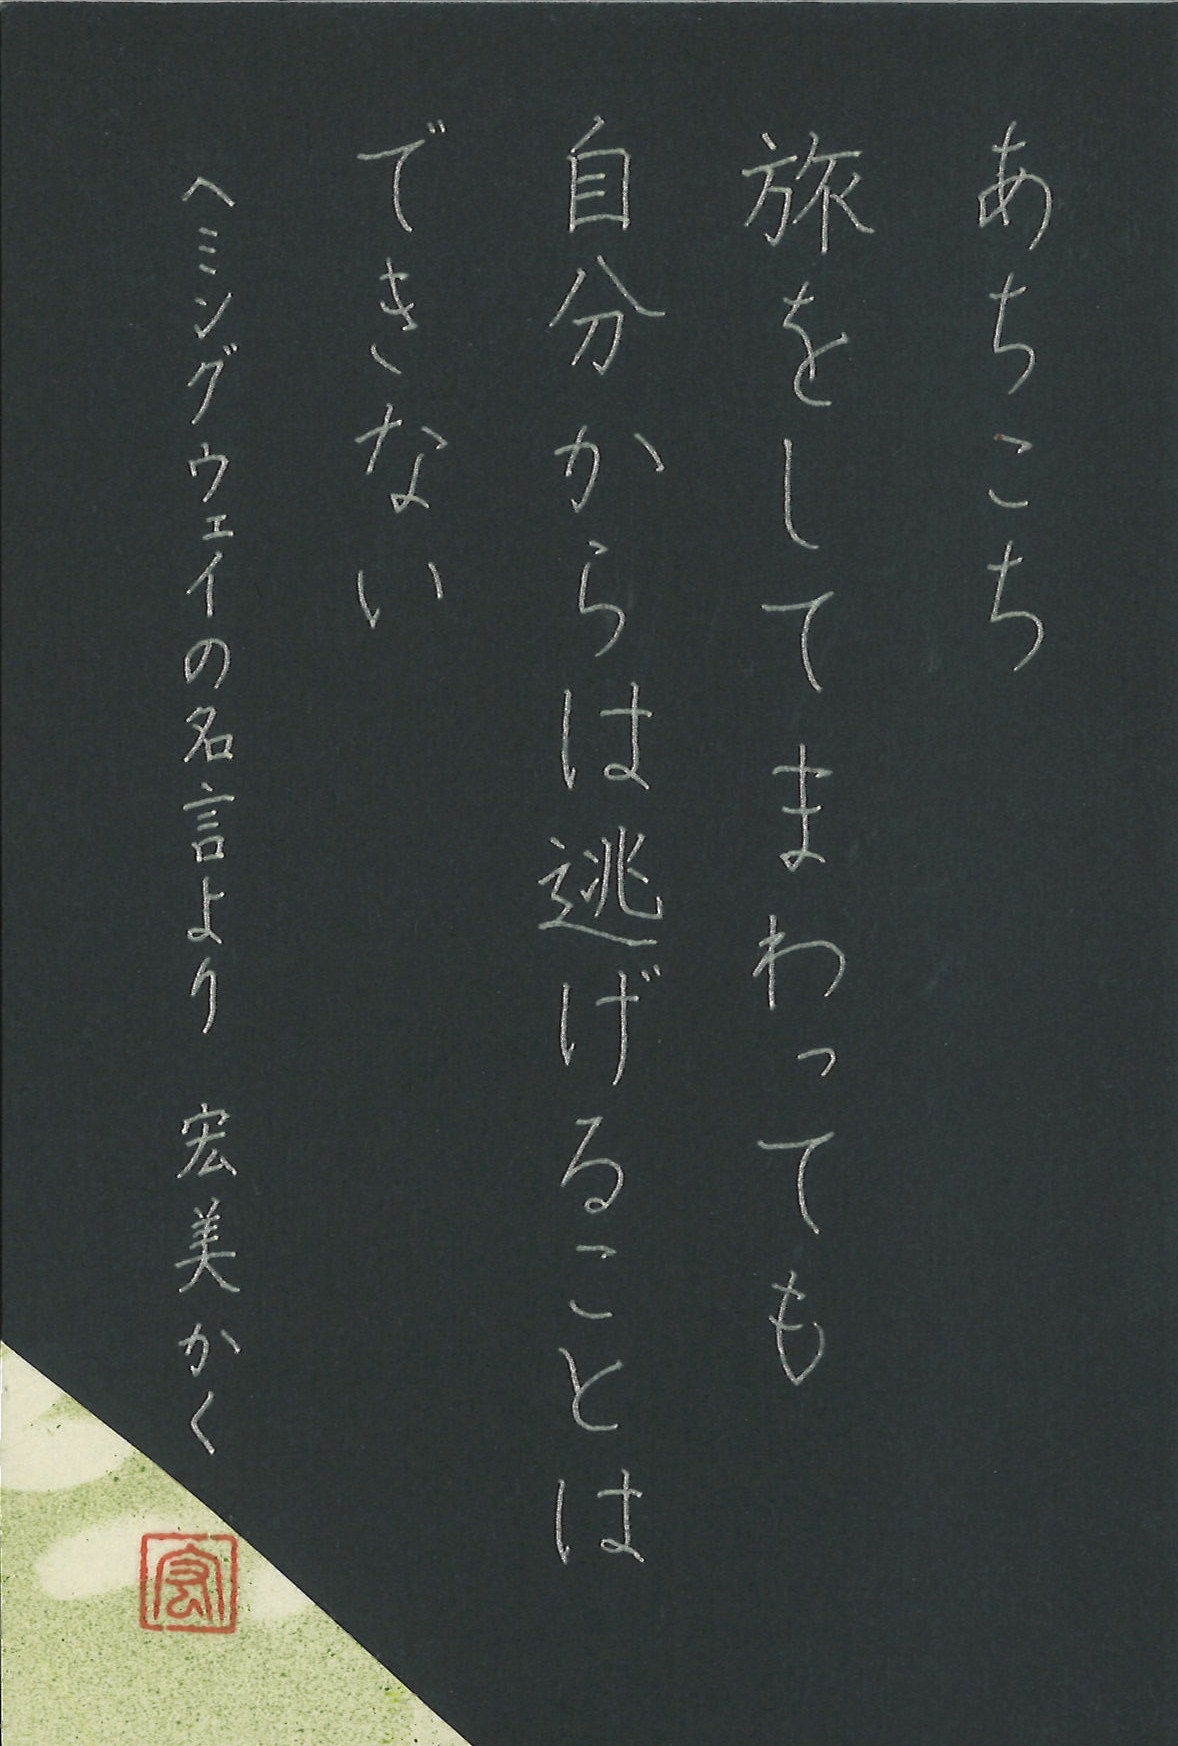 あちこち
旅をしてまわっても
自分からは逃げることは
できない
ヘミングウェイの名言より 宏美かく
宏